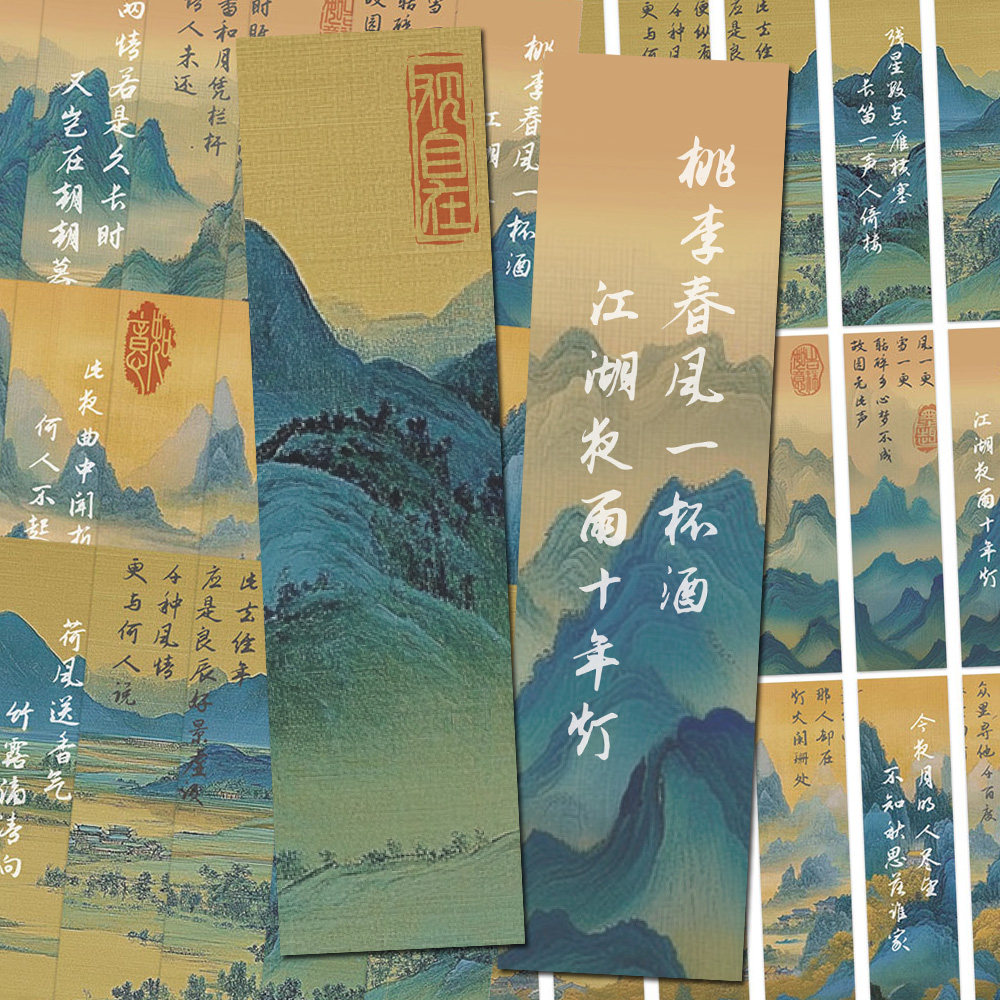 观自在
桃李春风一杯酒
江湖夜雨十年灯
两情若是久长时
又岂在朝朝暮
凭栏杆
人未还
桃李春风一杯酒
此夜曲中闻折
何人不起
此去经年
应是良辰好景虚设
千种风情
更与何人说
荷风送香气
竹露滴清
残星数点雁横塞
长笛一声人倚楼
风一更
雪一更
聒碎乡心梦不成
故园无此声
江湖夜雨十年灯
众里寻他千百度
那人却在
灯火阑珊处
今夜月明人尽望
不知秋思落谁家